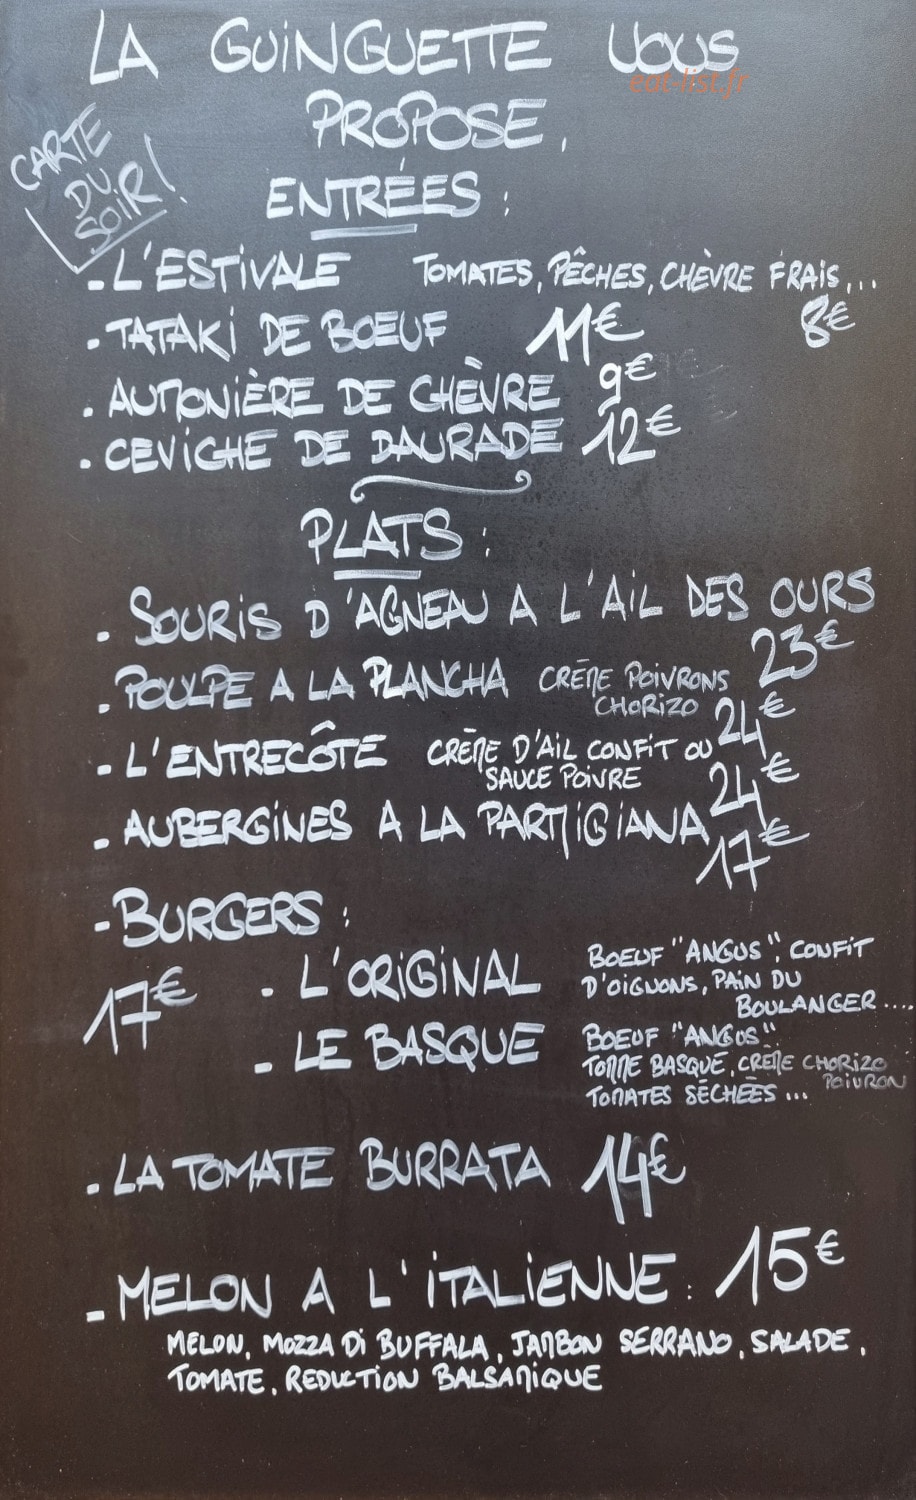 LA GUINGUETTE VOUS
eat-list.fr
PROPOSE.
CARTE
DU
SOIR!
ENTRÉES :
- L'ESTIVALE TOMATES, PÊCHES, CHÈVRE FRAIS,...
8€
. TATAKI DE BOEUF 11€
. AUMONIÈRE DE CHÈVRE 9€
. CEVICHE DE DAURADE 12€
PLATS :
. SOURIS D'AGNEAU A L'AIL DES OURS
23€
. POULPE A LA PLANCHA CRÈME POIVRONS
CHORIZO 24€
- L'ENTRECÔTE CRÈME D'AIL CONFIT OU
SAUCE POIVRE 24€
. AUBERGINES A LA PARMIGIANA
17€
- BURGERS :
17€
. L'ORIGINAL BOEUF "ANGUS", CONFIT
D'OIGNONS, PAIN DU
BOULANGER ....
- LE BASQUE BOEUF "ANGUS"
TOMME BASQUE, CRÈME CHORIZO
POIVRON
TOMATES SÉCHÉES ...
. LA TOMATE BURRATA 14€
- MELON A L'ITALIENNE : 15€
MELON, MOZZA DI BUFFALA, JAMBON SERRANO, SALADE,
TOMATE, REDUCTION BALSAMIQUE